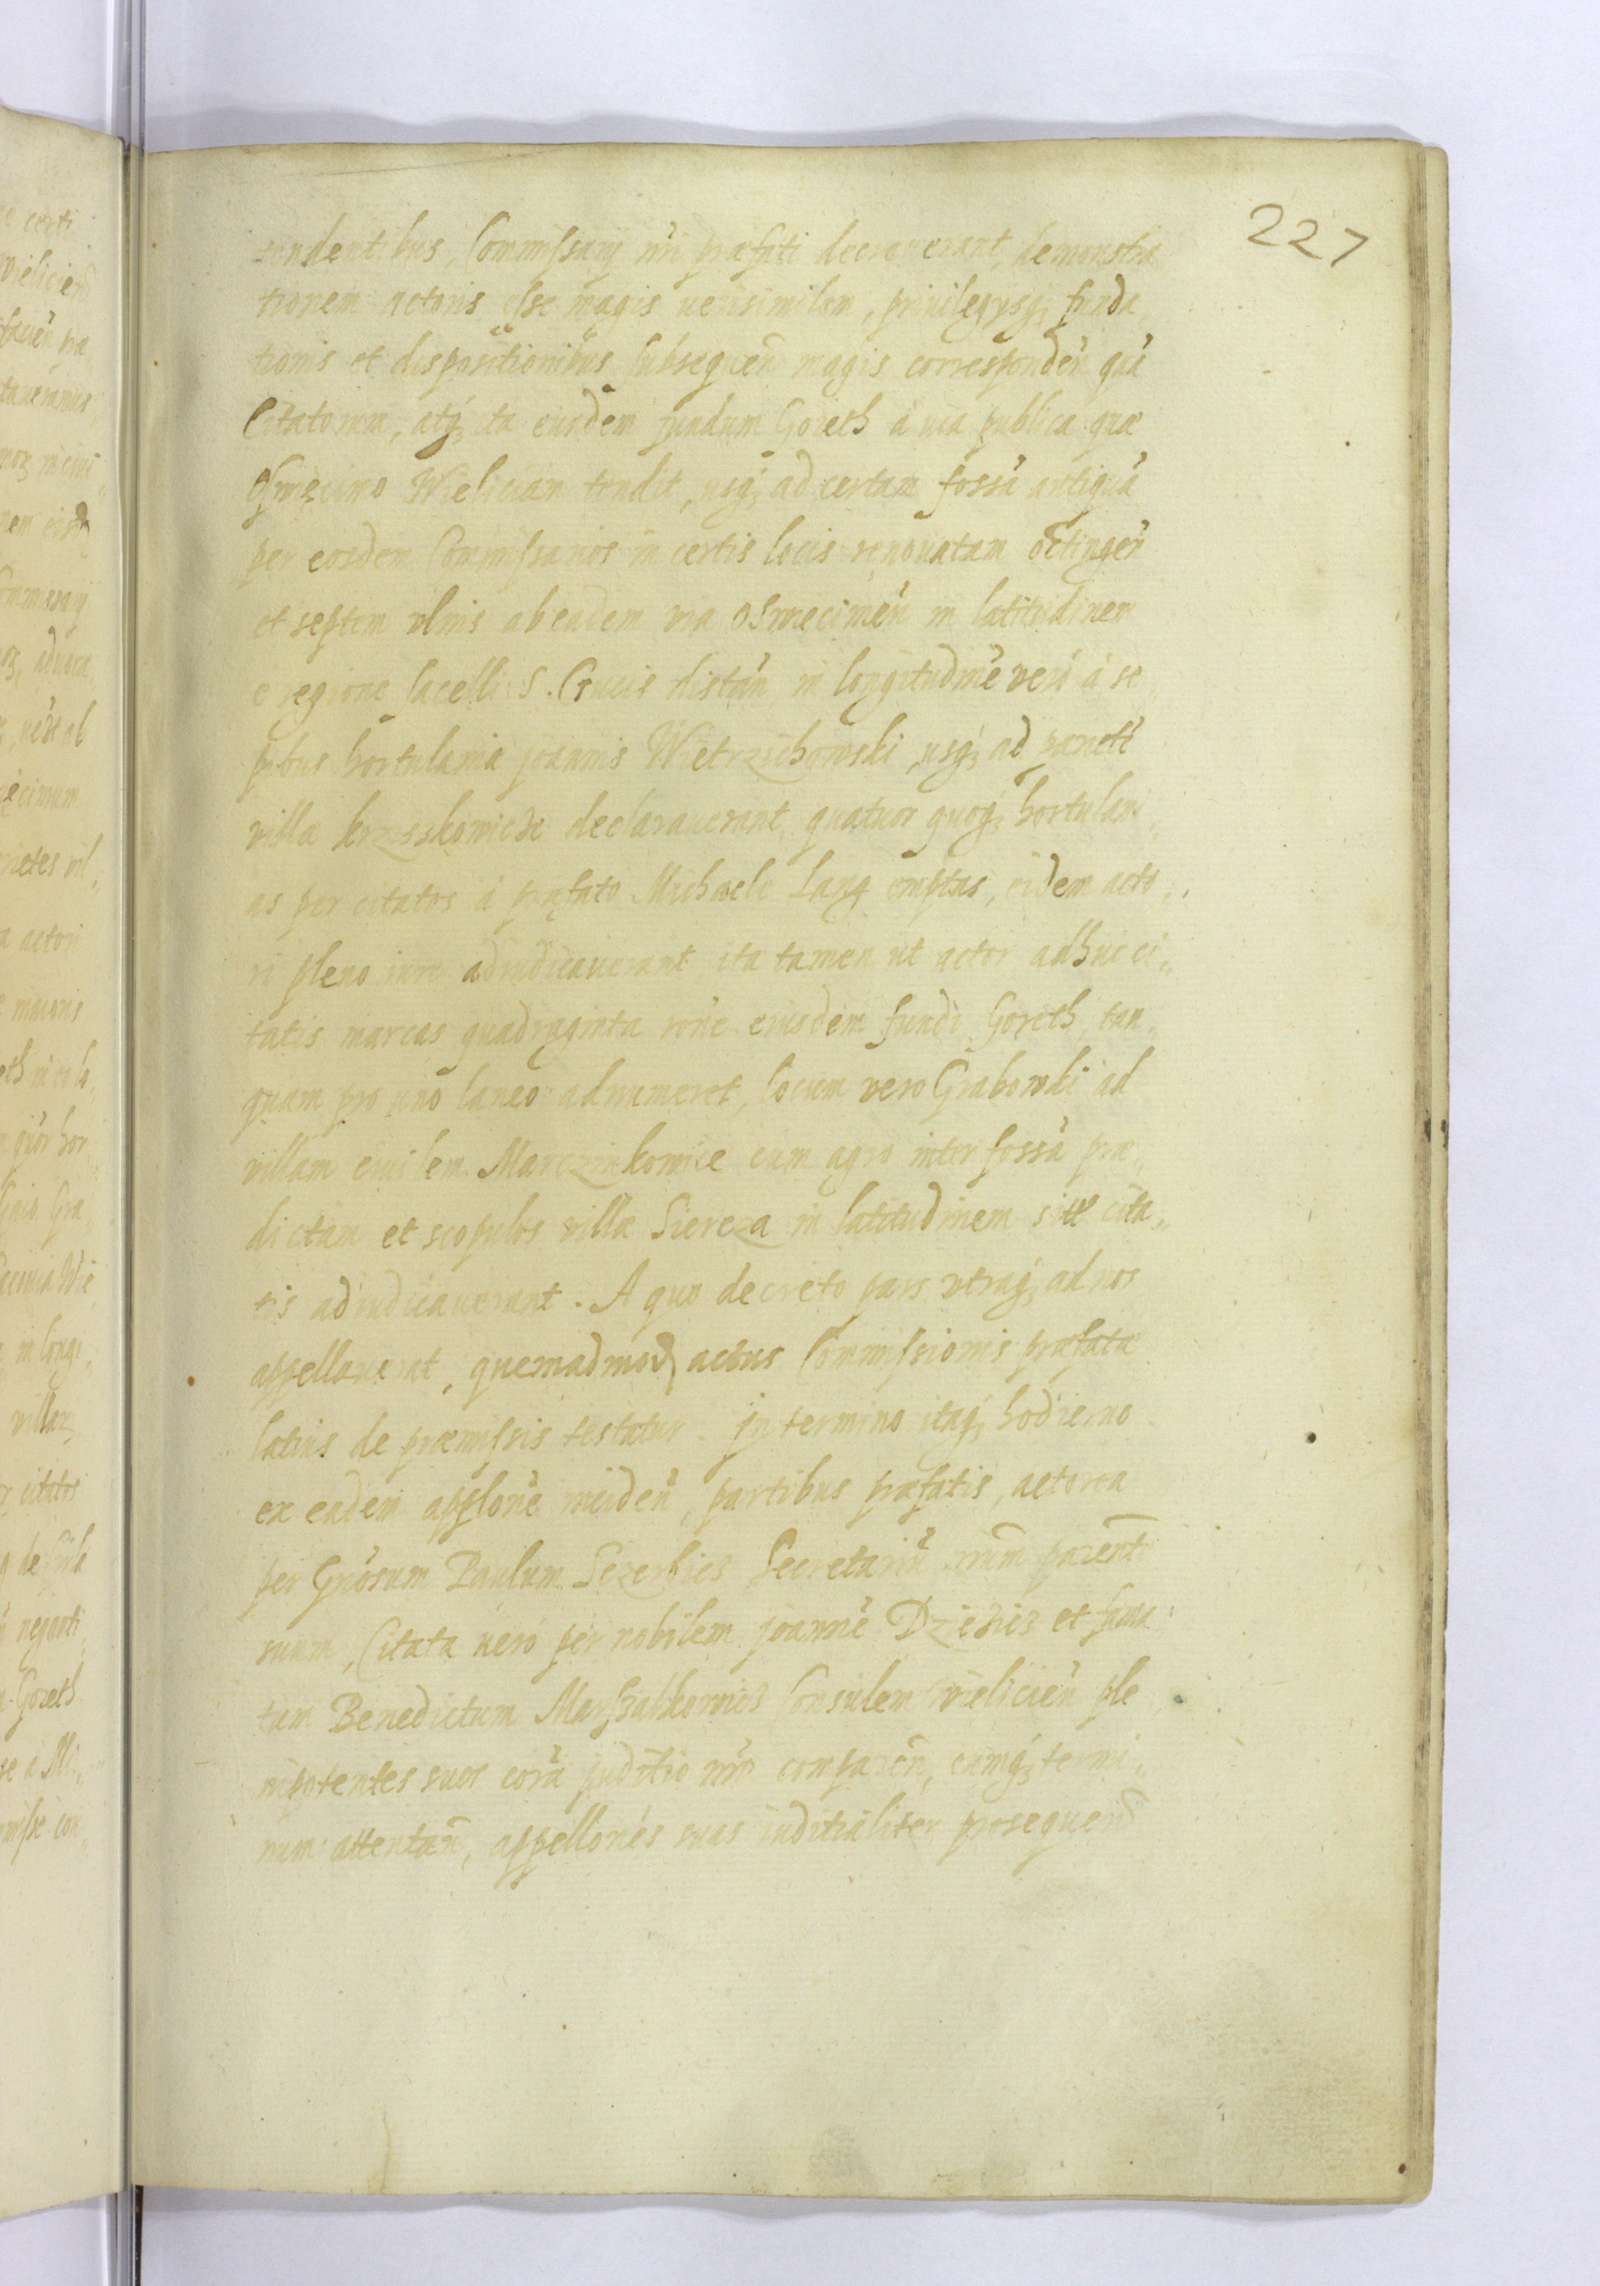 227
tendentibus, Commissarij nri praefati decreuerant, demonstra
tionem actoris esse magis uerisimilem, priuilegysq; funda
tionis et dispositionibus subsequen magis corresponden qua
Citatorum, atq; ita eundem fundum Goreth a uia publica quae
Oswiecimo Wieliciam tendit, usq; ad certam fossa antiqua
per eosdem Commissarios in certis locis renouatam octingen
et septem vlnis ab eadem via Oswiecimen in latitudinem
e regione sacelli S. Crucis distan in longitudine vero a se
pibus hortulania joannis Wietrzichowski, usq; ad parieté
villa krzyszkowicze declarauerant, quatuor quoq; hortulani
as per citatos a praefato Michaele Lang emptas, eidem acto
ri pleno iure adiudicauerant ita tamen ut actor adhuc ci„
tatis marcas quadraginta rone eiusdem fundi Goreth, tan„
quam pro uno laneo adnumeret, locum vero Grabowki ad
villam eius dem Marczinkowice cum agro inter fossa prae„
dictam et scopulos villae Siercza in latitudinem site cita„
tis adiudicauerant. A quo decreto pars vtraq; ad nos
appellauerat, quemadmod actus Commissionis praefatae
latius de praemissis testatur. In termino itaq; hodierno
ex eadem applone inciden, partibus praefatis, actorea
per Gnosum Paulum Sczerbicz Secretariu nrum parent
suum, Citata uero per nobilem joanne Dziesicz et fama
tum Benedictum Marszalkowicz Consulem Vieliciens ple
nipotentes suos cora juditio nro comparen, eumq; termi„
num attentan, appellones suas iuditialiter prosequen